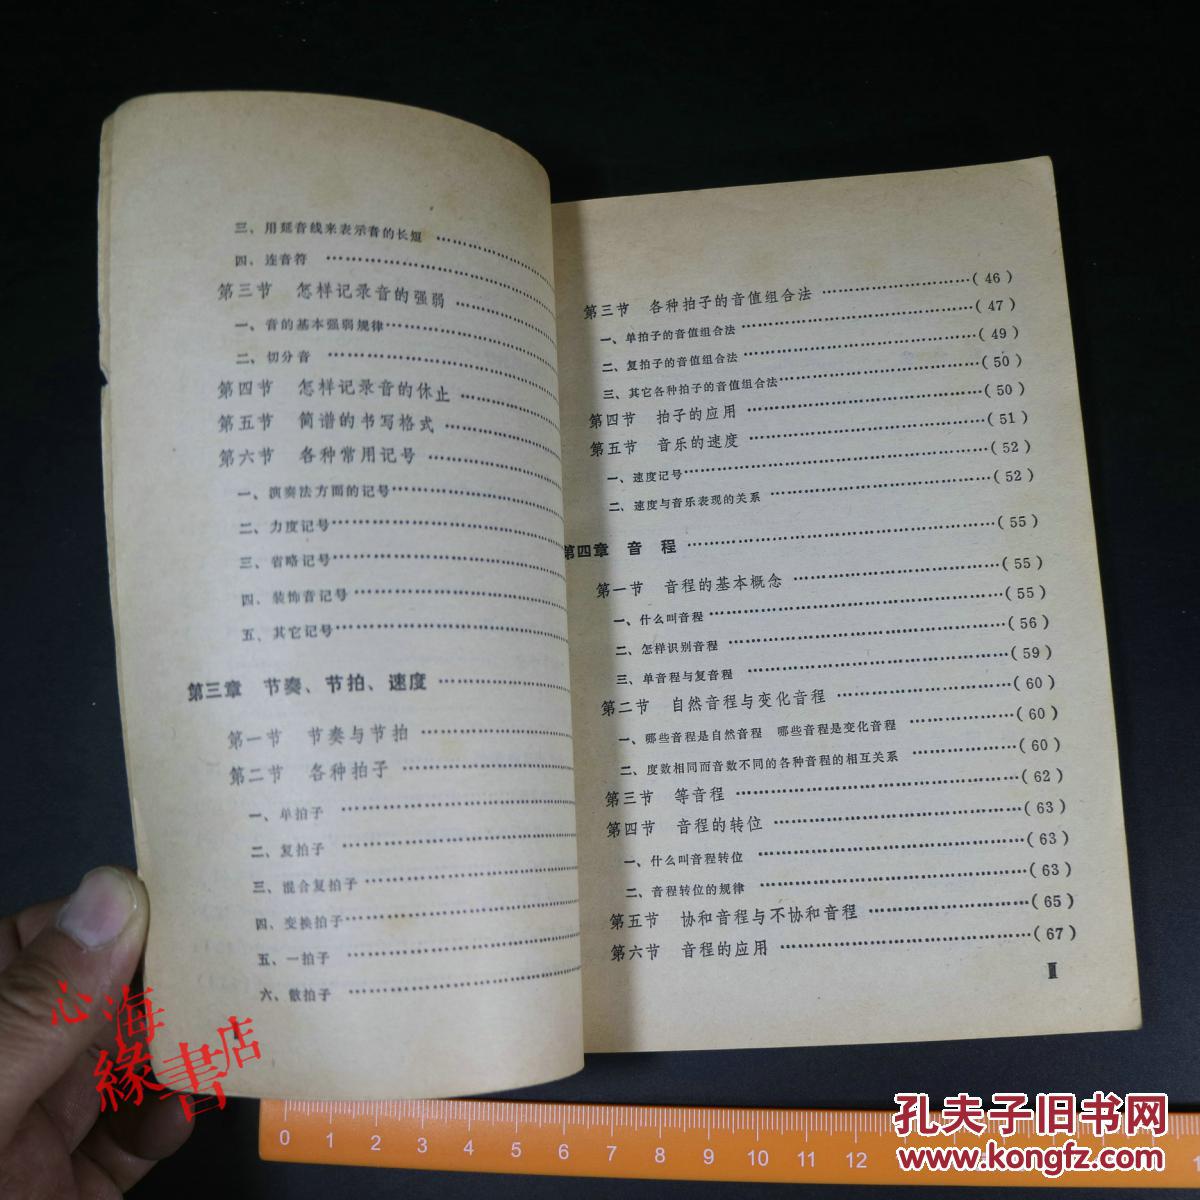 三、用延音线来表示音的长短 ………………
四、连音符 ………………
第三节 怎样记录音的强弱 ………………
一、音的基本强弱规律………………
二、切分音 ………………
第四节 怎样记录音的休止 ………………
第五节 简谱的书写格式 ………………
第六节 各种常用记号 ………………
一、演奏法方面的记号………………
二、力度记号………………
三、省略记号………………
四、装饰音记号………………
五、其它记号………………
第三章 节奏、节拍、速度 ………………
第一节 节奏与节拍 ………………
第二节 各种拍子 ………………
一、单拍子 ………………
二、复拍子 ………………
三、混合复拍子………………
四、变换拍子………………
五、一拍子 ………………
六、散拍子 ………………
第三节 各种拍子的音值组合法 ………………(46)
一、单拍子的音值组合法………………(47)
二、复拍子的音值组合法………………(49)
三、其它各种拍子的音值组合法………………(50)
第四节 拍子的应用 ………………(50)
第五节 音乐的速度 ………………(51)
一、速度记号………………(52)
二、速度与音乐表现的关系 ………………(52)
第四章 音 程 ………………(55)
第一节 音程的基本概念 ………………(55)
一、什么叫音程………………(55)
二、怎样识别音程 ………………(56)
三、单音程与复音程 ………………(59)
第二节 自然音程与变化音程 ………………(60)
一、哪些音程是自然音程 哪些音程是变化音程 ………………(60)
二、度数相同而音数不同的各种音程的相互关系 ………………(60)
第三节 等音程 ………………(62)
第四节 音程的转位 ………………(63)
一、什么叫音程转位 ………………(63)
二、音程转位的规律 ………………(63)
第五节 协和音程与不协和音程 ………………(65)
第六节 音程的应用 ………………(67)
Ⅱ
心海
緣書店
0 1 2 3 4 5 6 7 8 9 10 11 12
孔夫子旧书网
www.kongfz.com